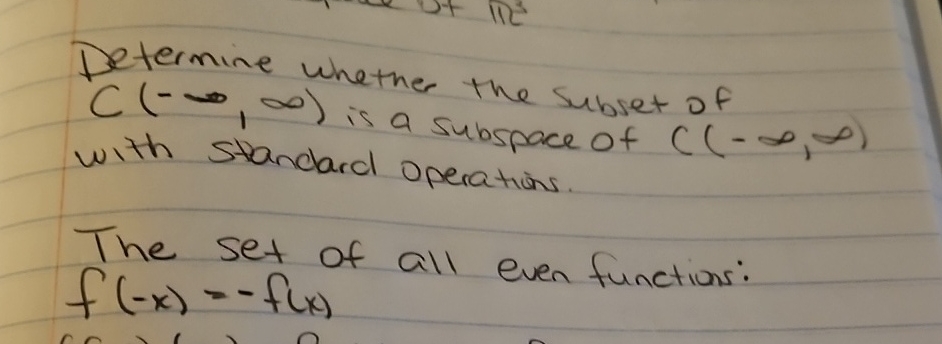 of m³
Determine whether the subset of
C(-∞, ∞) is a subspace of C(-∞, ∞)
with standard operations.
The set of all even functions:
f(-x) = -f(x)